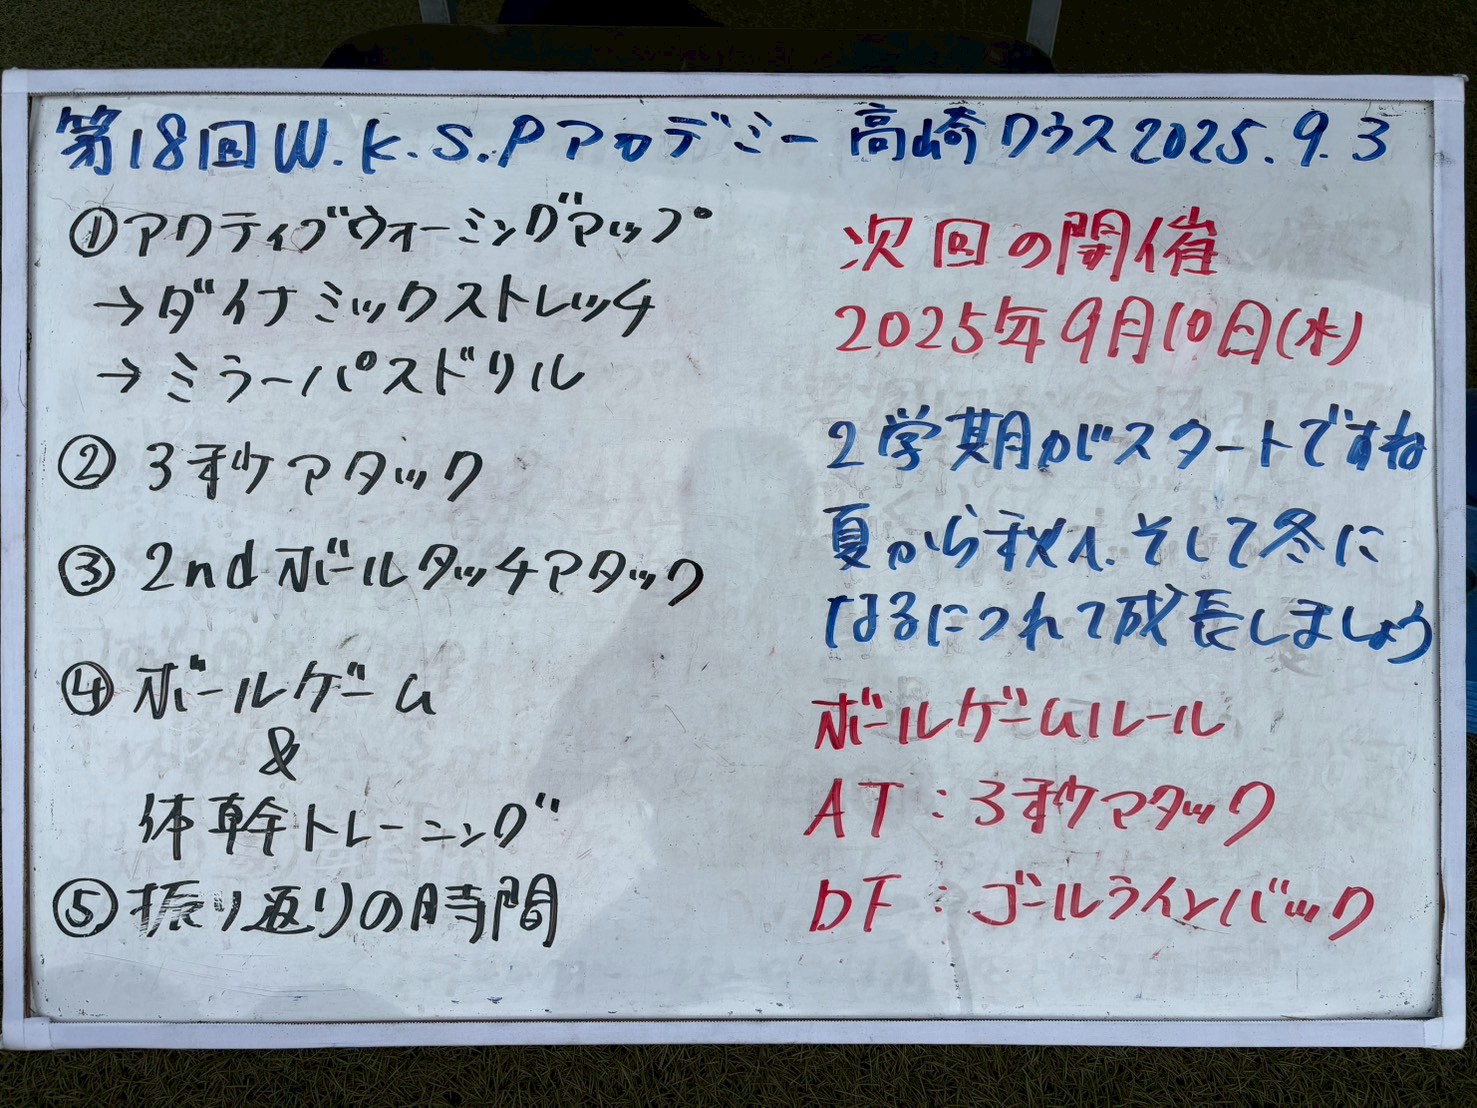 第18回W.K.S.Pアカデミー 高崎クラス2025.9.3
①アクティブウォーミングアップ
→ダイナミックストレッチ
→ミラーパスドリル
② 3秒アタック
③ 2ndボールタッチアタック
④ ボールゲーム
&
体幹トレーニング
⑤振り返りの時間
次回の開催
2025年9月10日(水)
2学期がスタートですね
夏から秋へ、そして冬に
なるにつれて成長しましょう
ボールゲームルール
AT:3秒アタック
DF:ゴールラインバック